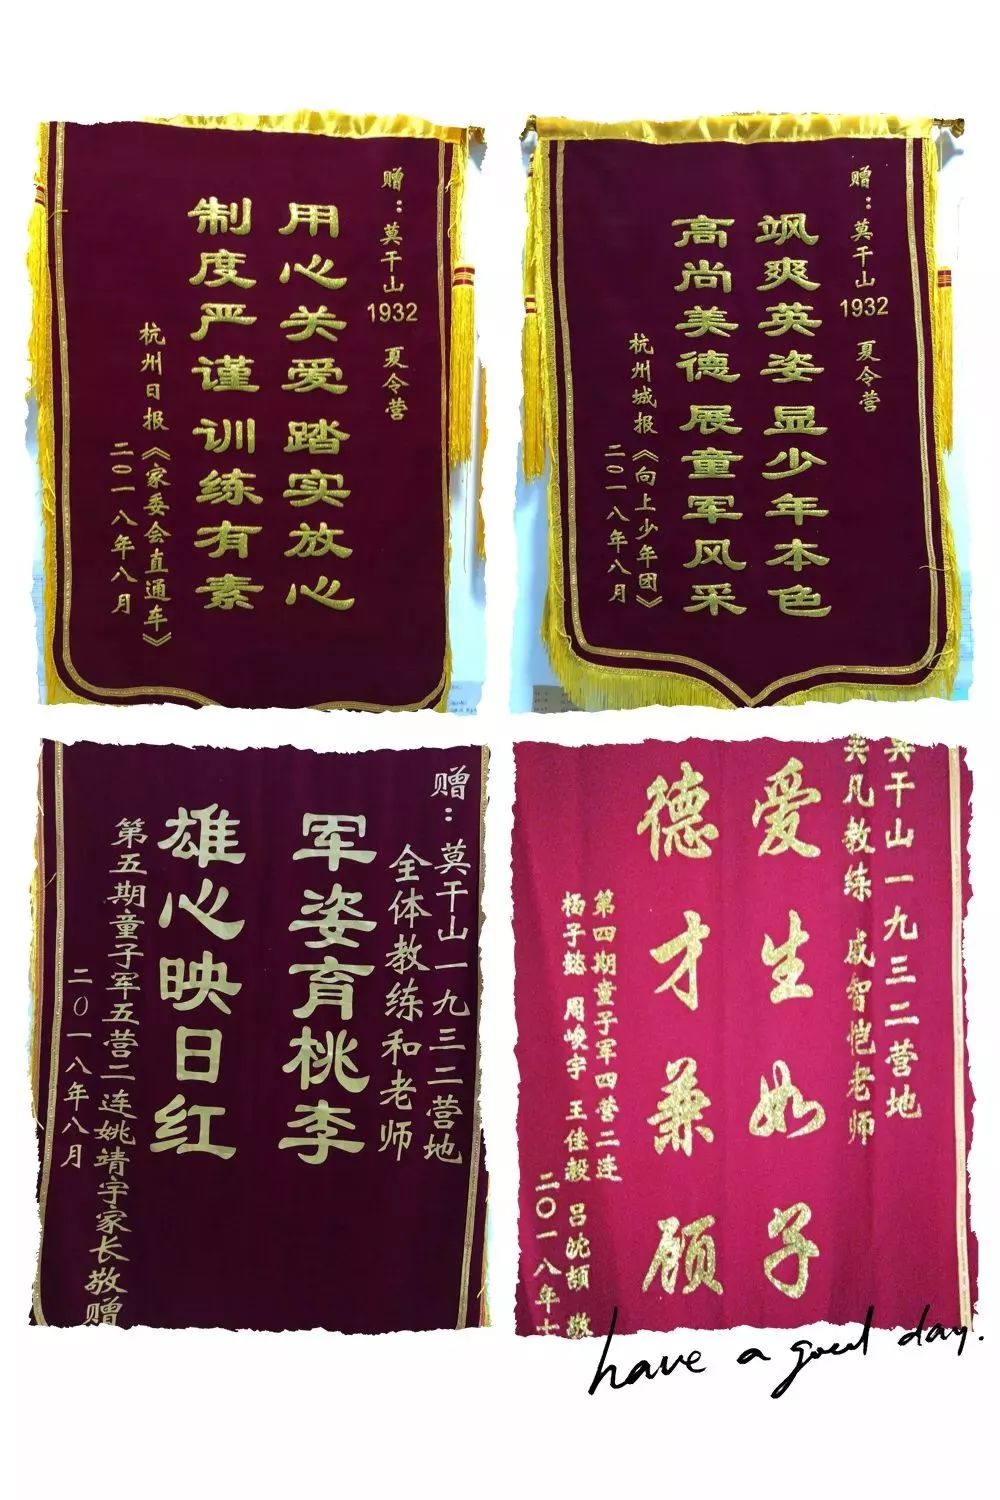 赠：莫干山1932 夏令营
用心关爱踏实放心
制度严谨训练有素
杭州日报《家委会直通车》
二〇一八年八月
赠：莫干山1932 夏令营
飒爽英姿显少年本色
高尚美德展童军风采
杭州城报《向上少年团》
二〇一八年八月
赠：莫干山一九三二营地
全体教练和老师
军姿育桃李
雄心映日红
第五期童子军五营二连姚靖宇家长敬赠
二〇一八年八月
干山一九三二营地
凡教练 戚智恺老师
爱生如子
德才兼顾
第四期童子军四营二连
杨子懿 周峻宇 王佳毅 吕沈颉
二〇一八年七
have a good day.